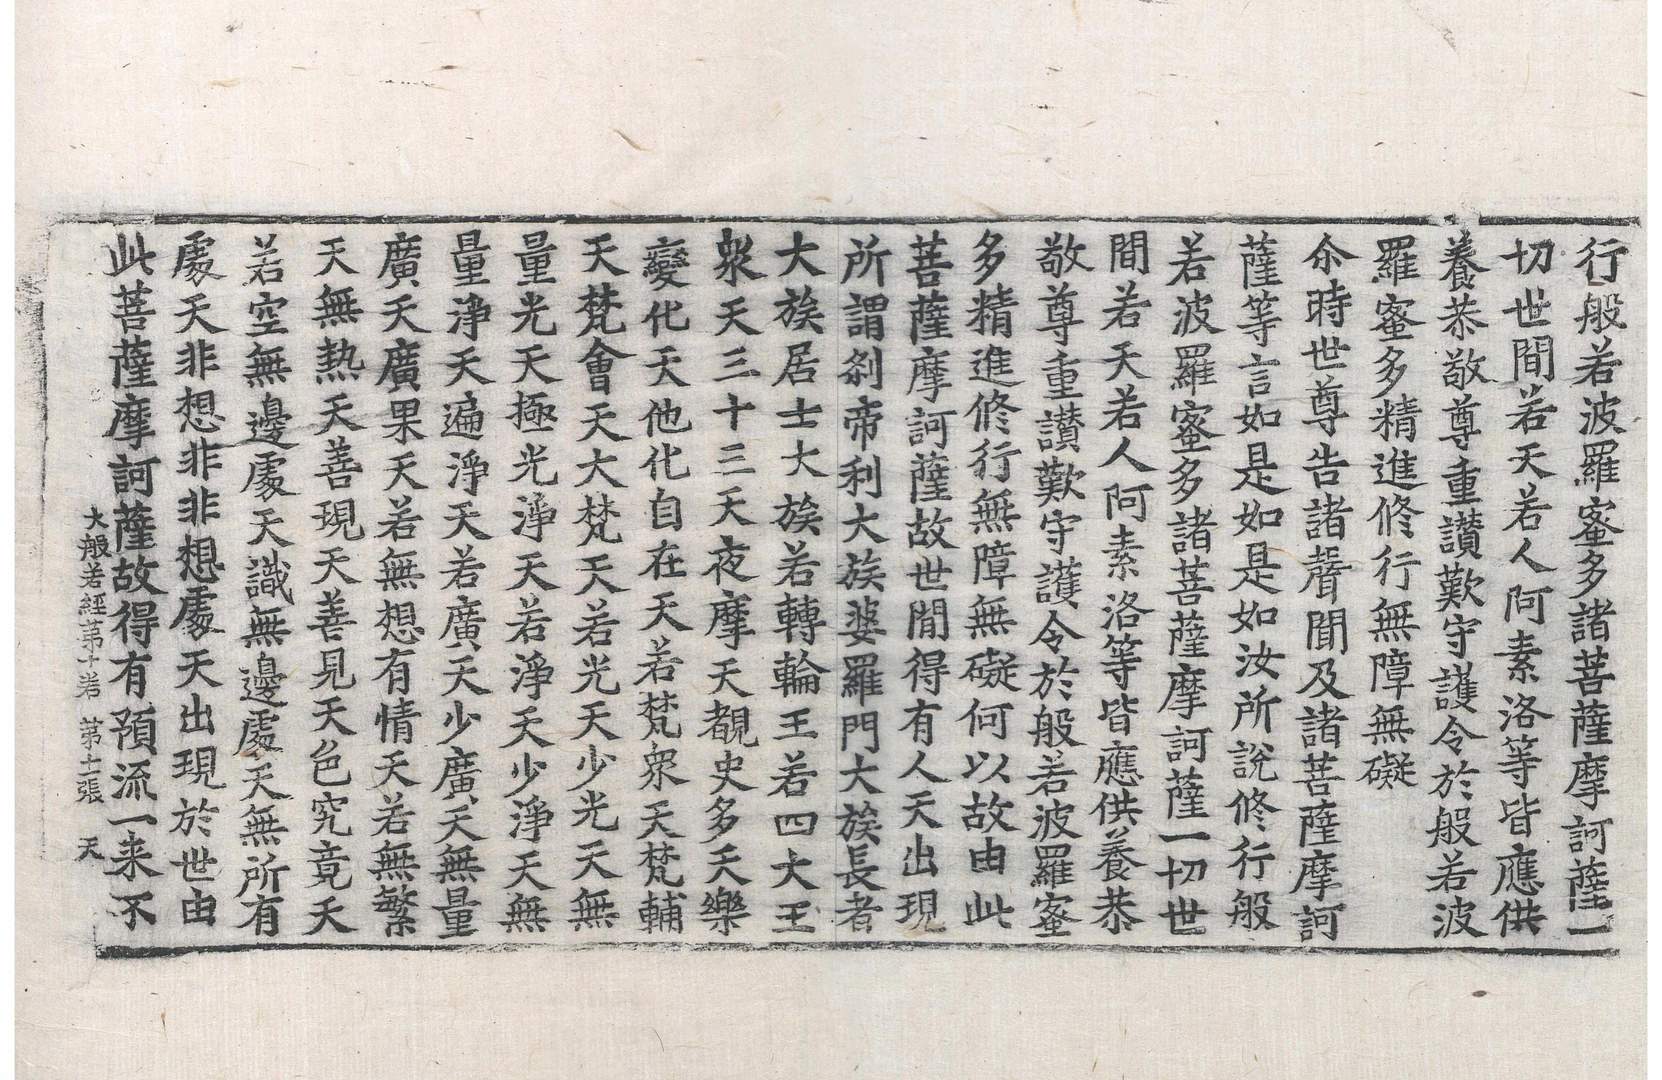 行般若波羅蜜多諸菩薩摩訶薩一
切世間若天若人阿素洛等皆應供
養恭敬尊重讃歎守護令於般若波
羅蜜多精進修行無障無礙
尒時世尊告諸聲聞及諸菩薩摩訶
薩等言如是如是如汝所說修行般
若波羅蜜多諸菩薩摩訶薩一切世
間若天若人阿素洛等皆應供養恭
敬尊重讃歎守護令於般若波羅蜜
多精進修行無障無礙何以故由此
菩薩摩訶薩故世間得有人天出現
所謂刹帝利大族婆羅門大族長者
大族居士大族若轉輪王若四大王
衆天三十三天夜摩天覩史多天樂
變化天他化自在天若梵衆天梵輔
天梵會天大梵天若光天少光天無
量光天極光淨天若淨天少淨天無
量淨天遍淨天若廣天少廣天無量
廣天廣果天若無想有情天若無繁
天無熱天善現天善見天色究竟天
若空無邊處天識無邊處天無所有
處天非想非非想處天出現於世由
此菩薩摩訶薩故得有預流一来不
大般若經苐十卷　苐十二張　天